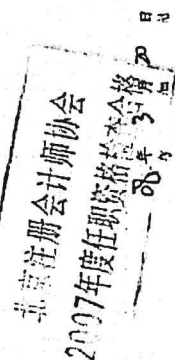 北京注册会计师协会
2007年度任职资格检查合格
08年3月20日